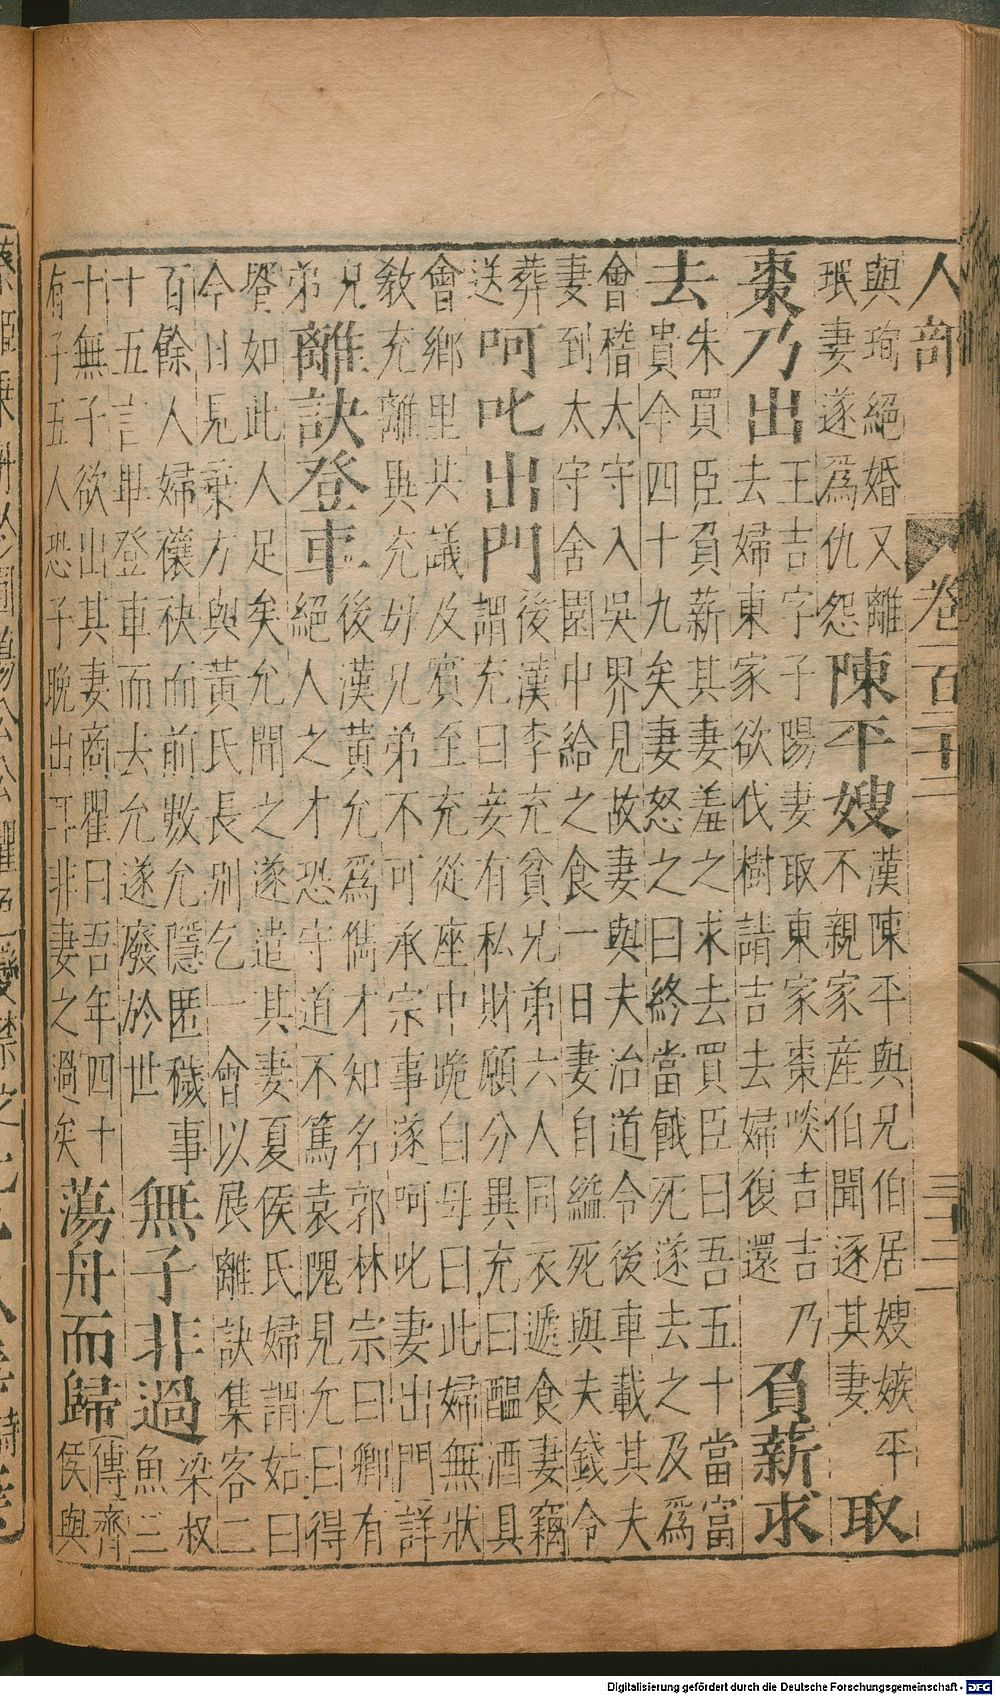 人部 卷
與珣絕婚又離
珉妻遂爲仇怨
陳平嫂
漢陳平與兄伯居嫂嫉平
不親家産伯聞逐其妻
取
棗乃出
王吉字子陽妻取東家棗啖吉吉乃
去婦東家欲伐樹請吉去婦復還
負薪求
去
朱買臣負薪其妻羞之求去買臣曰吾五十當富
貴今四十九矣妻怒之曰終當餓死遂去之及爲
會稽太守入吳界見故妻與夫治道令後車載其夫
妻到太守舍園中給之食一日妻自縊死與夫錢令
葬
送
呵叱出門
後漢李充貧兄弟六人同衣遞食妻竊
謂充曰妾有私財願分異充曰醞酒具
會鄉里共議及賓至充從座中跪白母曰此婦無狀
敎充離與充母兄弟不可承宗事遂呵叱妻出門詳
兄
弟
離訣登車
後漢黃允爲儁才知名郭林宗曰卿有
絕人之才恐守道不篤袁隗見允曰得
壻如此人足矣允聞之遂遣其妻夏侯氏婦謂姑曰
今日見棄方與黃氏長別乞一會以展離訣集客二
百餘人婦攘袂而前數允隱匿穢事
十五言畢登車而去允遂廢於世
無子非過
梁叔
魚三
十無子欲出其妻商瞿曰吾年四十
有子五人恐子晚出耳非妻之過矣
蕩舟而歸
傳齊
侯與
Digitalisierung gefördert durch die Deutsche Forschungsgemeinschaft - DFG